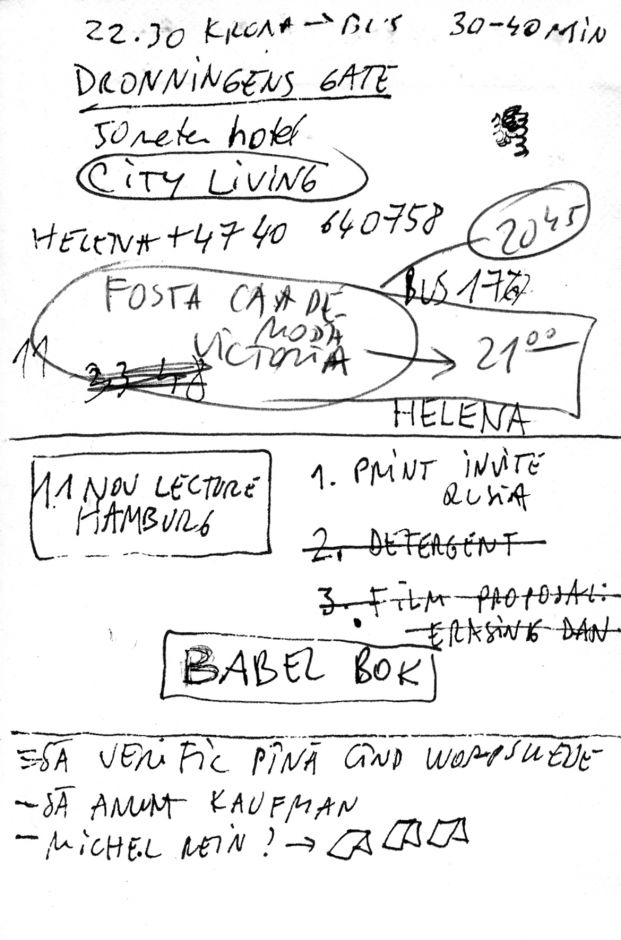 22.30 KRONA → BUS 30-40 MIN
DRONNINGENS GATE
50 meter hotel
CITY LIVING
HELENA +47 40 640758
20 45
BUS 1767
FOSTA CASA DE
MODĂ
VICTORIA → 21 00
11
33 48
HELENA
11 NOV LECTURE
HAMBURG
1. PRINT INVITE
RUSIA
2. DETERGENT
3. FILM PROPOSAL:
ERASING DAN
BABEL BOK
- SĂ VERIFIC PÎNĂ CÎND WORPSWEDE
- SĂ ANUNT KAUFMAN
- MICHEL REIN? →